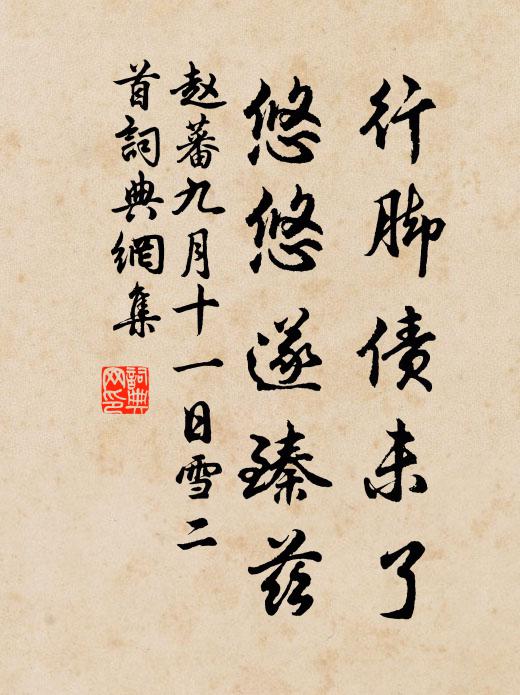 行脚债未了
悠悠遂臻兹
赵蕃九月十一日雪二
首詞典網集
詞典
网印